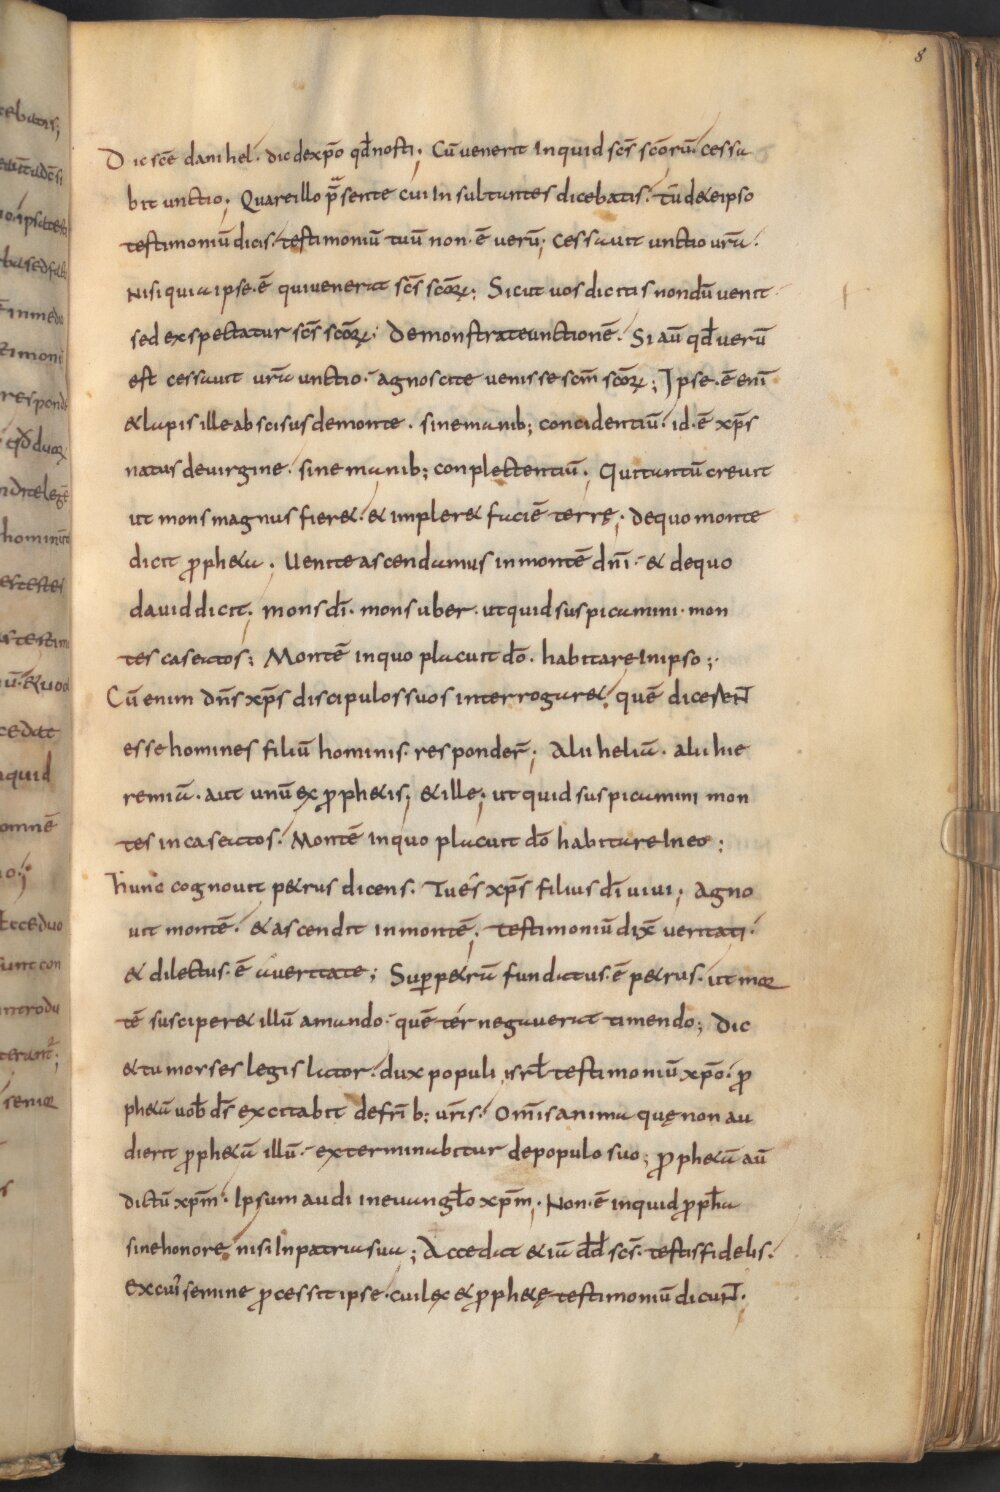 8
Dic scē danihel · dic de xp̄o qđ nosti · Cū venerit inquid sc̄s sc̄orū · cessa
bit unctio ; Quare illo p̄sente cui insultantes dicebatis · tū de &eipso
testimoniū dicis · testimoniū tuū non · ē verū ; Cessauit unctio ur̄a ·
Nisi quia ipse · ē qui venerat sc̄s sc̄oꝝ ; Sicut vos dicitis nondū venit ·
sed expectatur sc̄s sc̄oꝝ ; Demonstrate unctionē · Si aū qđ verū
est cessauit ur̄a unctio · agnoscite venisse sc̄m sc̄oꝝ ; Ipse · ē enī
& lapis ille abscisus de monte · sine manib; concidentiū · id · ē xp̄s
natus de virgine · sine manib; conplectentiū · Qui tantū creuit
ut mons magnus fier& · & impler& faciē terrę · De quo monte
dicit ꝓph&a · Uenite ascendamus in montē dn̄i · & de quo
dauid dicit · mons dī · mons uber · ut quid suspicamini · mon
tes caseatos ; Montē in quo placuit dō · habitare in ipso ;
Cū enim dn̄s xp̄s discipulos suos interrogar& quē dicesent
esse homines filiū hominis · responder̄ ; Alii heliā · alii hie
remiā · aut unū ex ꝓph&is ; & ille ; ut quid suspicamini mon
tes incaseatos · Montē in quo placuit dō habitare in eo ;
Hunc cognouit p&rus dicens · Tu es xp̄s filius dī uiui ; agno
uit montē · & ascendit in montē ; testimoniū dix̄ veritati ·
& dilectus · ē a veritate ; Sup p&rū fundatus · ē p&rus · ut moꝛ
tē susciper& illū amando · quē tér negauerat timendo ; Dic
& tu morses legis lator · dux populi isrł testimoniū xp̄o · ꝓ
ph&ā uoƀ dš excitabit de frīb; ur̄is · Om̄is anima quę non au
dierit ꝓph&ā illū · exterminabitur de populo suo ; ꝓph&ā aū
dictū xp̄m · Ipsum audi in euanglo xp̄m ; Non · ē inquid ꝓpha
sine honore nisi in patria sua ; Accedat & iā dd sc̄s · testis fidelis ·
Ex cui' semine ꝓcessit ipse · cui lex & ꝓph&ę testimoniū dicunt ·